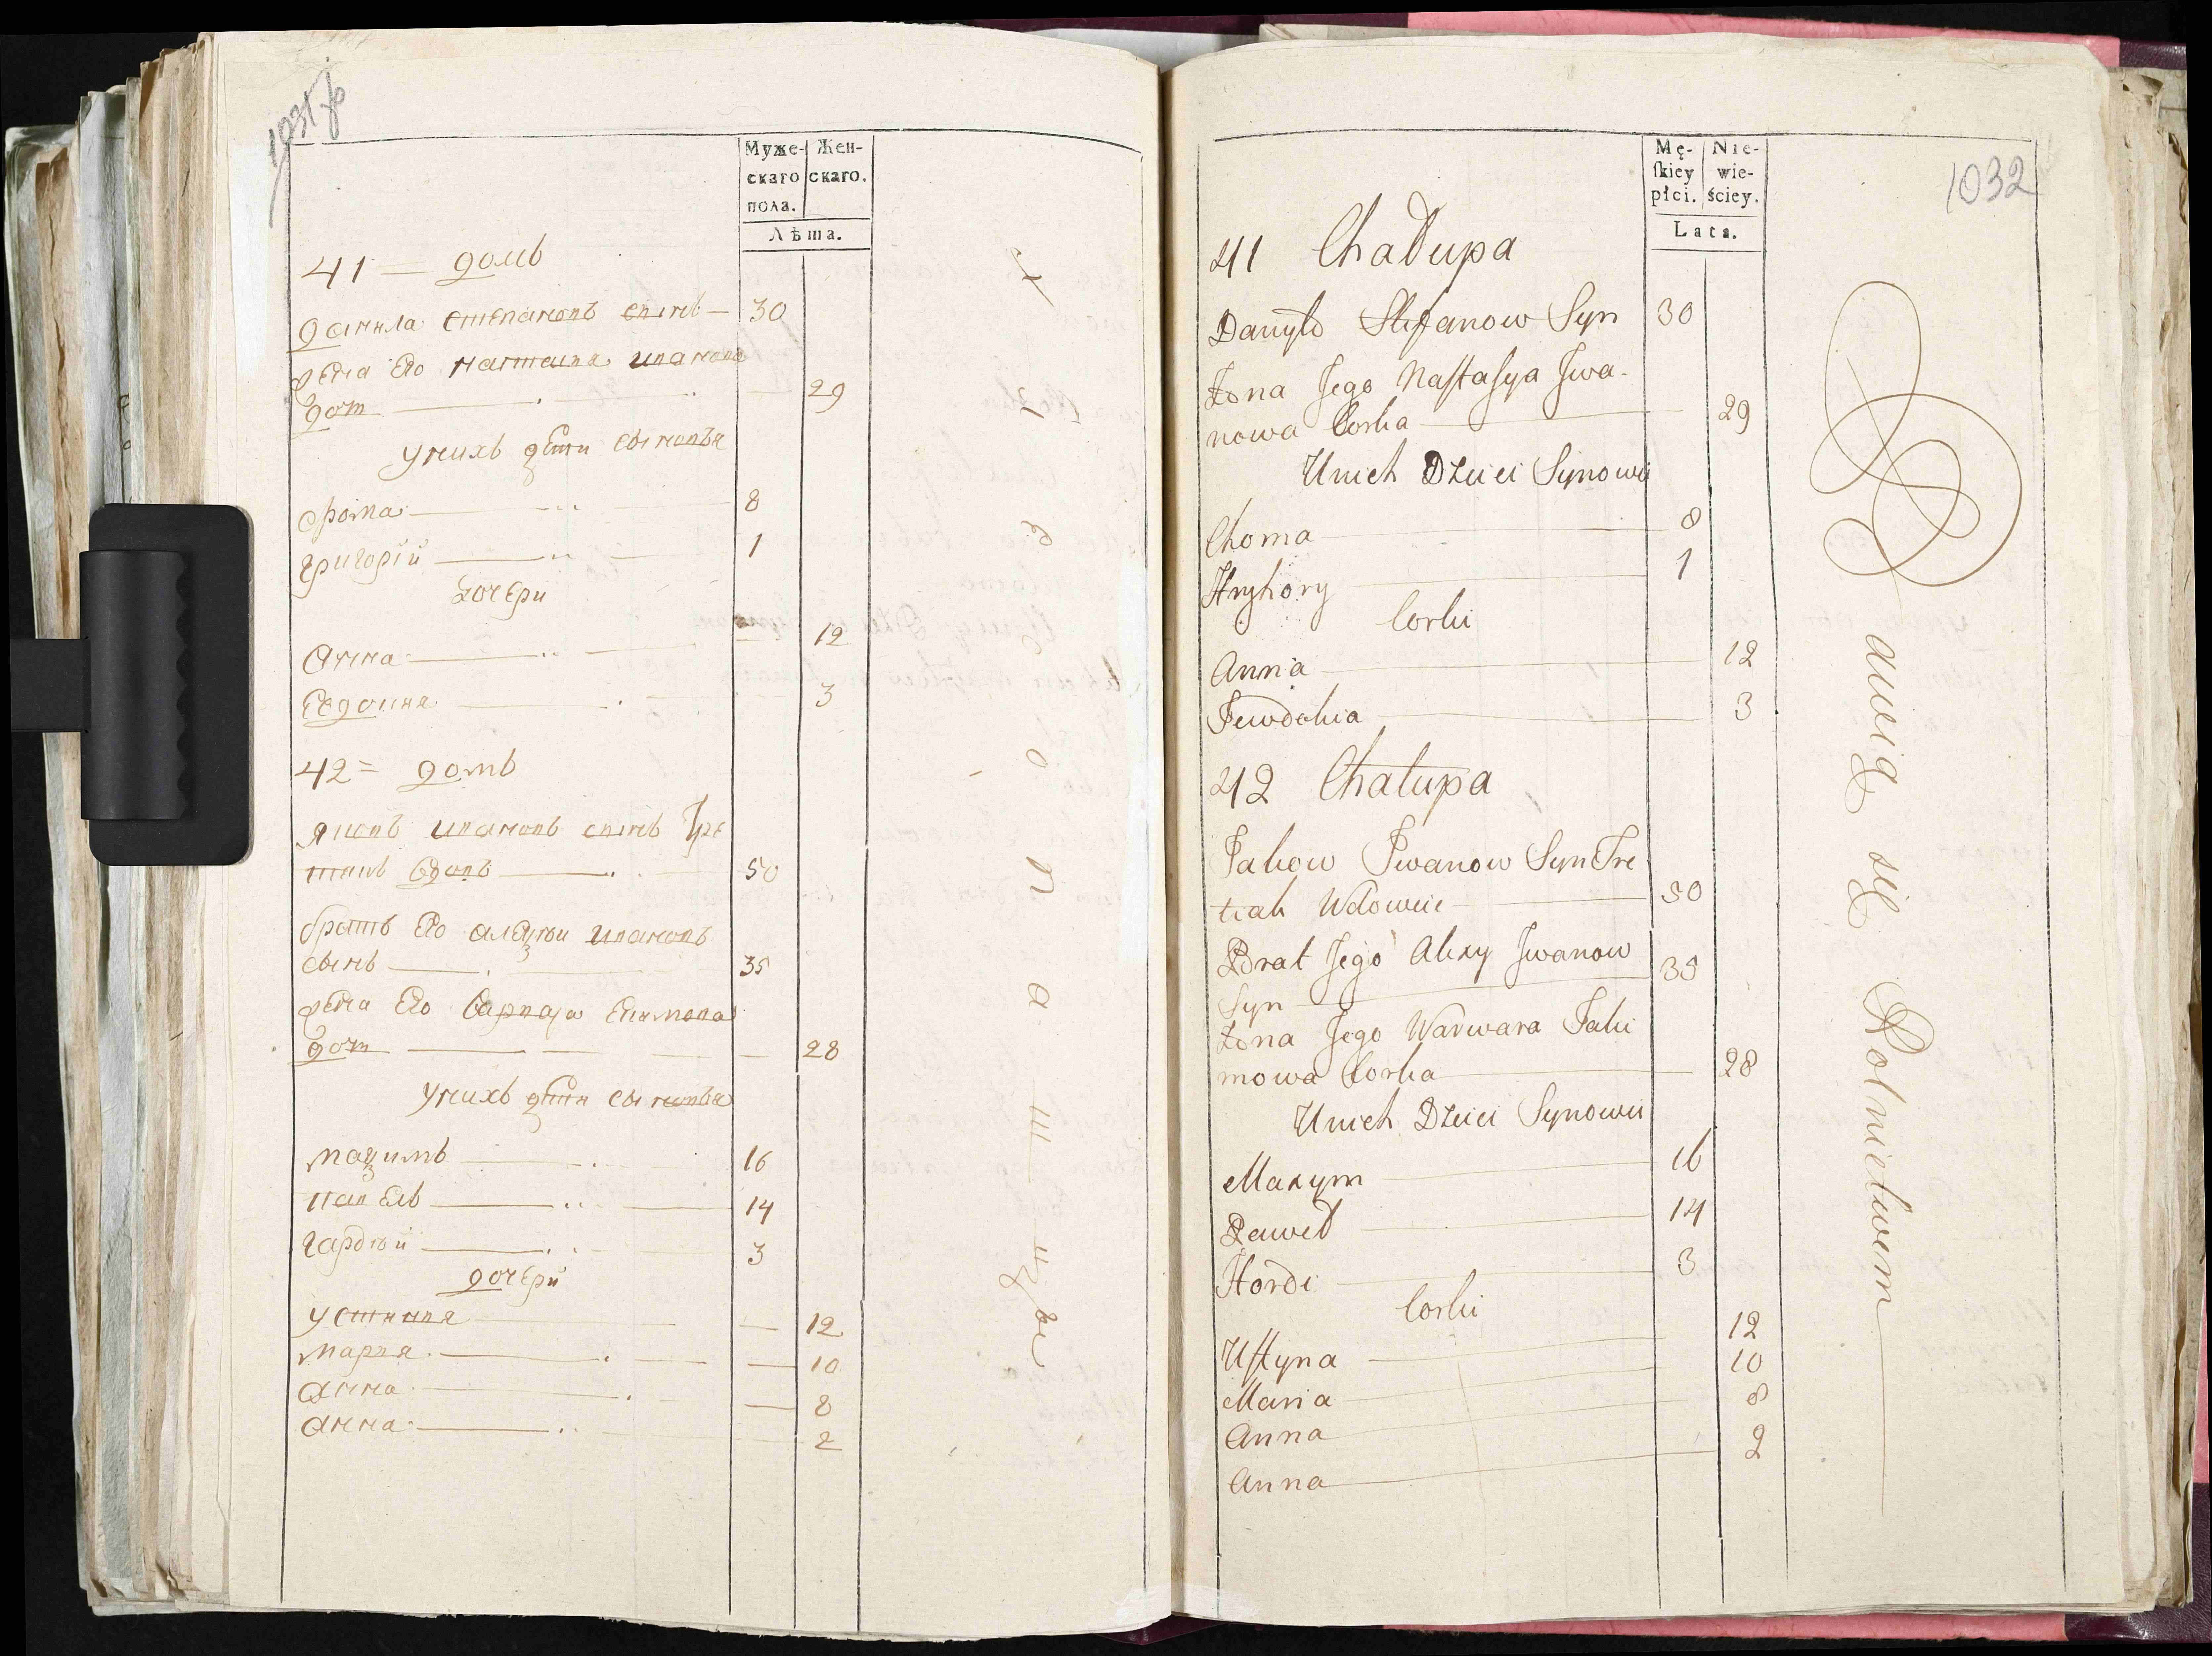 Муже-
скаго
пола.
Жен-
скаго.
Лѣта.
41 = домъ
данила степановъ сынъ — 30
жена Его настасия иванова
дочь — 29
у нихъ дѣти сыновья
фома — 8
григорїй — 1
дочери
анна — 12
Евдокия — 3
42 = домъ
яковъ ивановъ сынъ Тре
тякъ вдовъ — 50
братъ Его алеѯѣи ивановъ
сынъ — 35
жена Его варвара
дочь — 28
у нихъ дѣти сыновья
маѯимъ — 16
павелъ — 14
гардѣй — 3
дочери
устиния — 12
мария — 10
анна — 8
анна — 2
хлебопашцы
1032
Mę-
ſkiey
płci.
Nie-
wie-
ściey.
Lata.
41 Chałupa
Danyło Stefanow Syn 30
Żona Jego Naſtaſya Jwa-
nowa Corka — 29
Unich Dzieci Synowie
Choma — 8
Hryhory — 1
Corki
Anna — 12
Jewdokia — 3
42 Chałupa
Jakow Jwanow Syn Tre
tiak Wdowiec — 50
Brat Jego Alexy Jwanow
Syn — 35
Żona Jego Warwara Jaki
mowa Corka — 28
Unich Dzieci Synowie
Maxym — 16
Paweł — 14
Hordi — 3
Corki
Uſtyna — 12
Maria — 10
Anna — 8
Anna — 2
awią się Rolnictwem